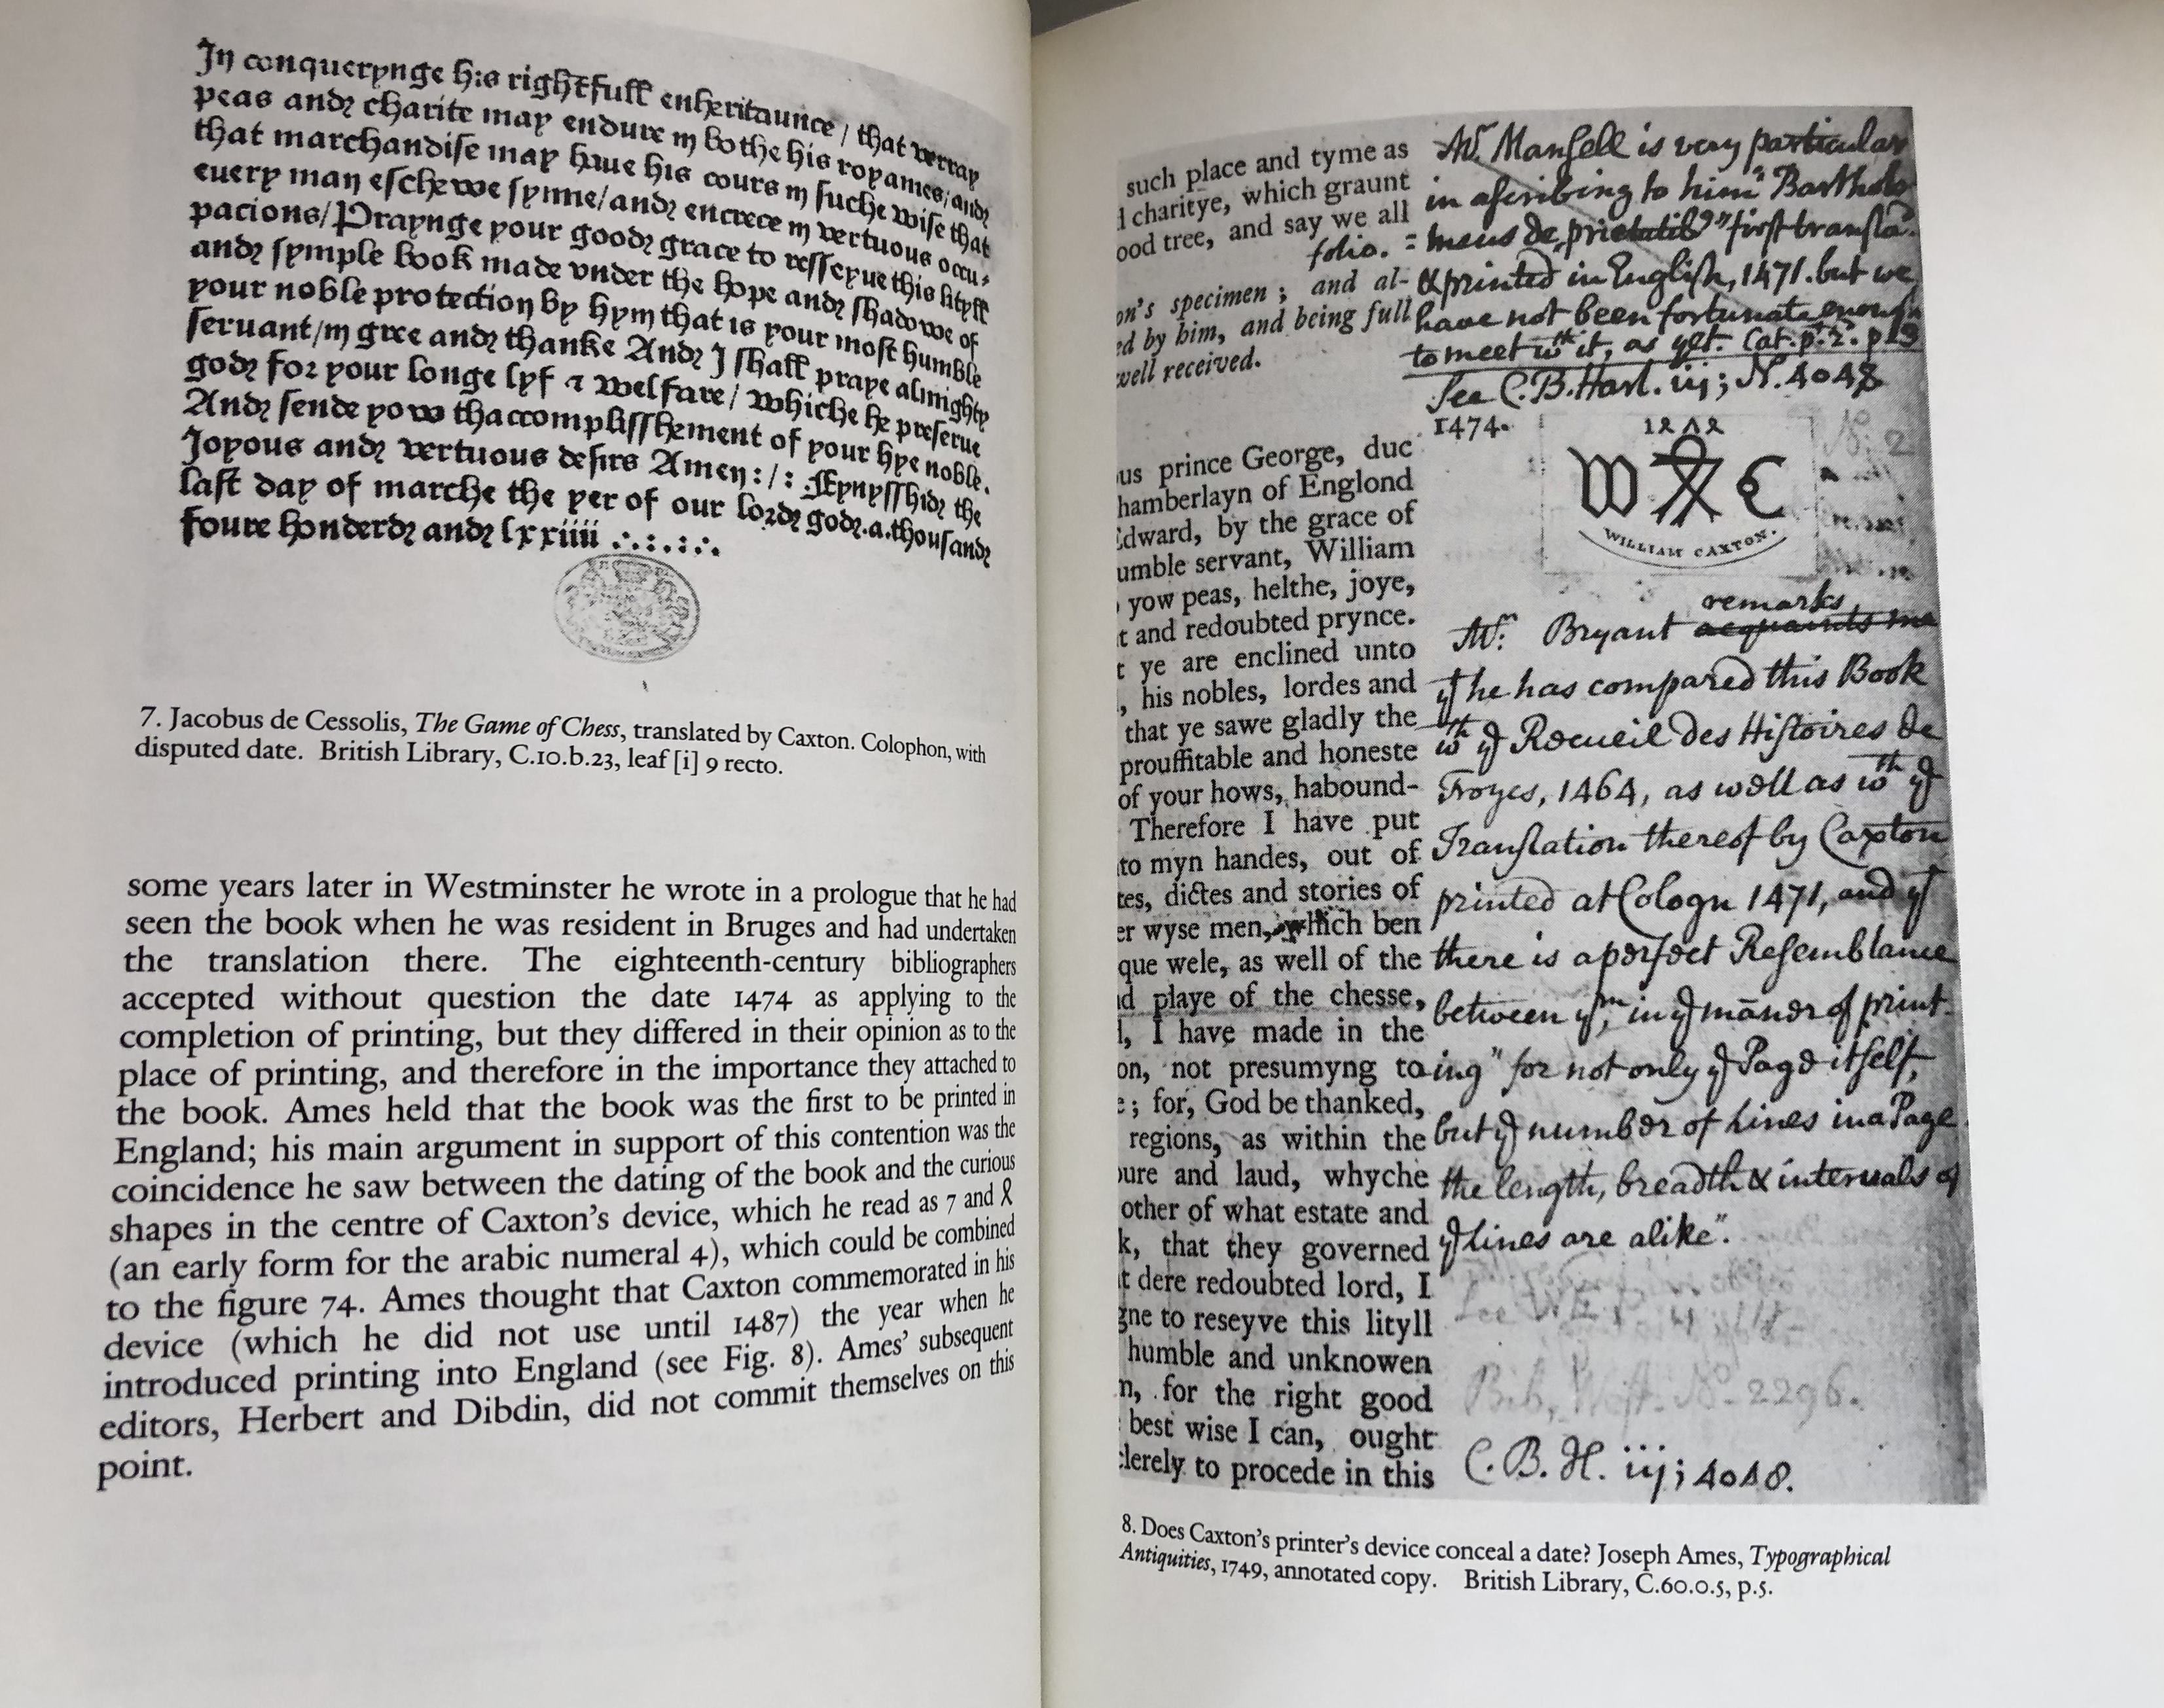 In conquerynge his rightfull enheritaunce / that verray
peas and charite may endure in bothe his royames/ and
that marchandise may haue his cours in suche wise that
euery man eschewe synne/ and encrece in vertuous occu-
pacions/ Praynge your good grace to resseyue this lityll
and symple book made vnder the hope and shadowe of
your noble protection by hym that is your most humble
seruant/ in gree and thanke And I shall praye almighty
god for your longe lyf & welfare/ whiche he preserue
And sende yow thaccomplisshement of your hye noble.
Joyous and vertuous desirs Amen :/: Fynysshid the
last day of marche the yer of our lord god. a. thousand
foure honderd and lxxiiii .:.:.:.
7. Jacobus de Cessolis, The Game of Chess, translated by Caxton. Colophon, with
disputed date. British Library, C.10.b.23, leaf [i] 9 recto.
some years later in Westminster he wrote in a prologue that he had
seen the book when he was resident in Bruges and had undertaken
the translation there. The eighteenth-century bibliographers
accepted without question the date 1474 as applying to the
completion of printing, but they differed in their opinion as to the
place of printing, and therefore in the importance they attached to
the book. Ames held that the book was the first to be printed in
England; his main argument in support of this contention was the
coincidence he saw between the dating of the book and the curious
shapes in the centre of Caxton's device, which he read as 7 and ዶ
(an early form for the arabic numeral 4), which could be combined
to the figure 74. Ames thought that Caxton commemorated in his
device (which he did not use until 1487) the year when he
introduced printing into England (see Fig. 8). Ames' subsequent
editors, Herbert and Dibdin, did not commit themselves on this
point.
such place and tyme as
d charitye, which graunt
ood tree, and say we all
folio.
on's specimen; and al-
ed by him, and being full
well received.
1474.
us prince George, duc
hamberlayn of Englond
Edward, by the grace of
umble servant, William
yow peas, helthe, joye,
t and redoubted prynce.
t ye are enclined unto
, his nobles, lordes and
that ye sawe gladly the
prouffitable and honeste
of your hows, habound-
Therefore I have put
to myn handes, out of
tes, dictes and stories of
er wyse men, which ben
que wele, as well of the
d playe of the chesse,
l, I have made in the
on, not presumyng to
e; for, God be thanked,
regions, as within the
oure and laud, whyche
other of what estate and
k, that they governed
t dere redoubted lord, I
gne to reseyve this lityll
humble and unknowen
n, for the right good
best wise I can, ought
clerely to procede in this
Mr. Mansell is very particular
in ascribing to him "Bartholo
meus de prietatib9" first transla.
& printed in English, 1471. but we
have not been fortunate enough
to meet wth it, as yet. Cat. pt. 2. p 13
See C.B. Harl. iij; N. 4048
W C
WILLIAM CAXTON.
remarks
Mr. Bryant acquaints me
yt he has compared this Book
wth ye Recueil des Histoires de
Troyes, 1464, as well as wth ye
Translation thereof by Caxton
printed at Cologn 1471, and yt
there is a perfect Resemblance
between ym, in ye maner of print-
ing "for not only ye Page itself,
but ye number of Lines in a Page
the length, breadth & intervals of
ye lines are alike".
No. 2296.
C. B. H. iij; 4048.
8. Does Caxton's printer's device conceal a date? Joseph Ames, Typographical
Antiquities, 1749, annotated copy. British Library, C.60.0.5, p.5.